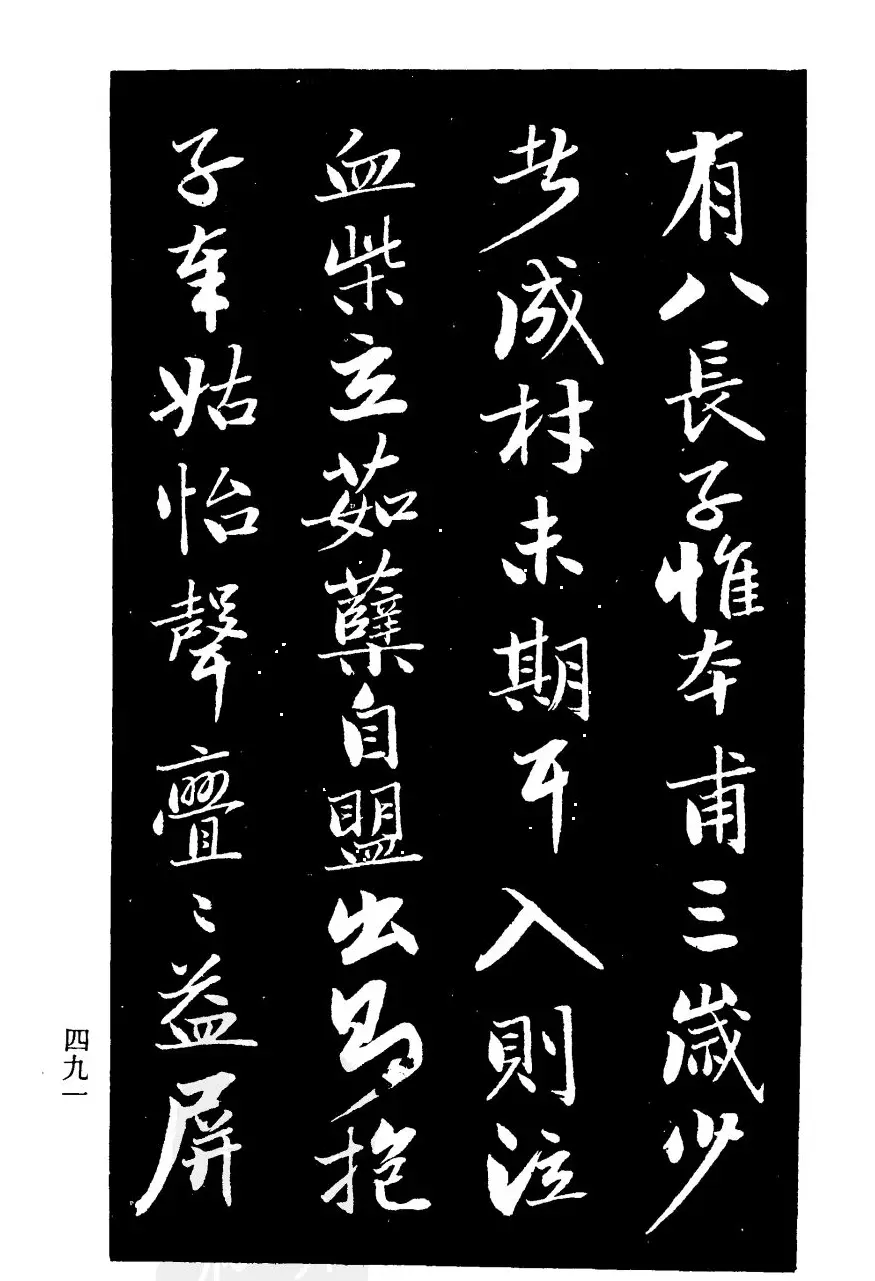 有八長子惟本甫三歲少
者成材未期耳入則泣
血柴立茹蘗自盟出則抱
子奉姑怡聲亹〻益屏
四九一